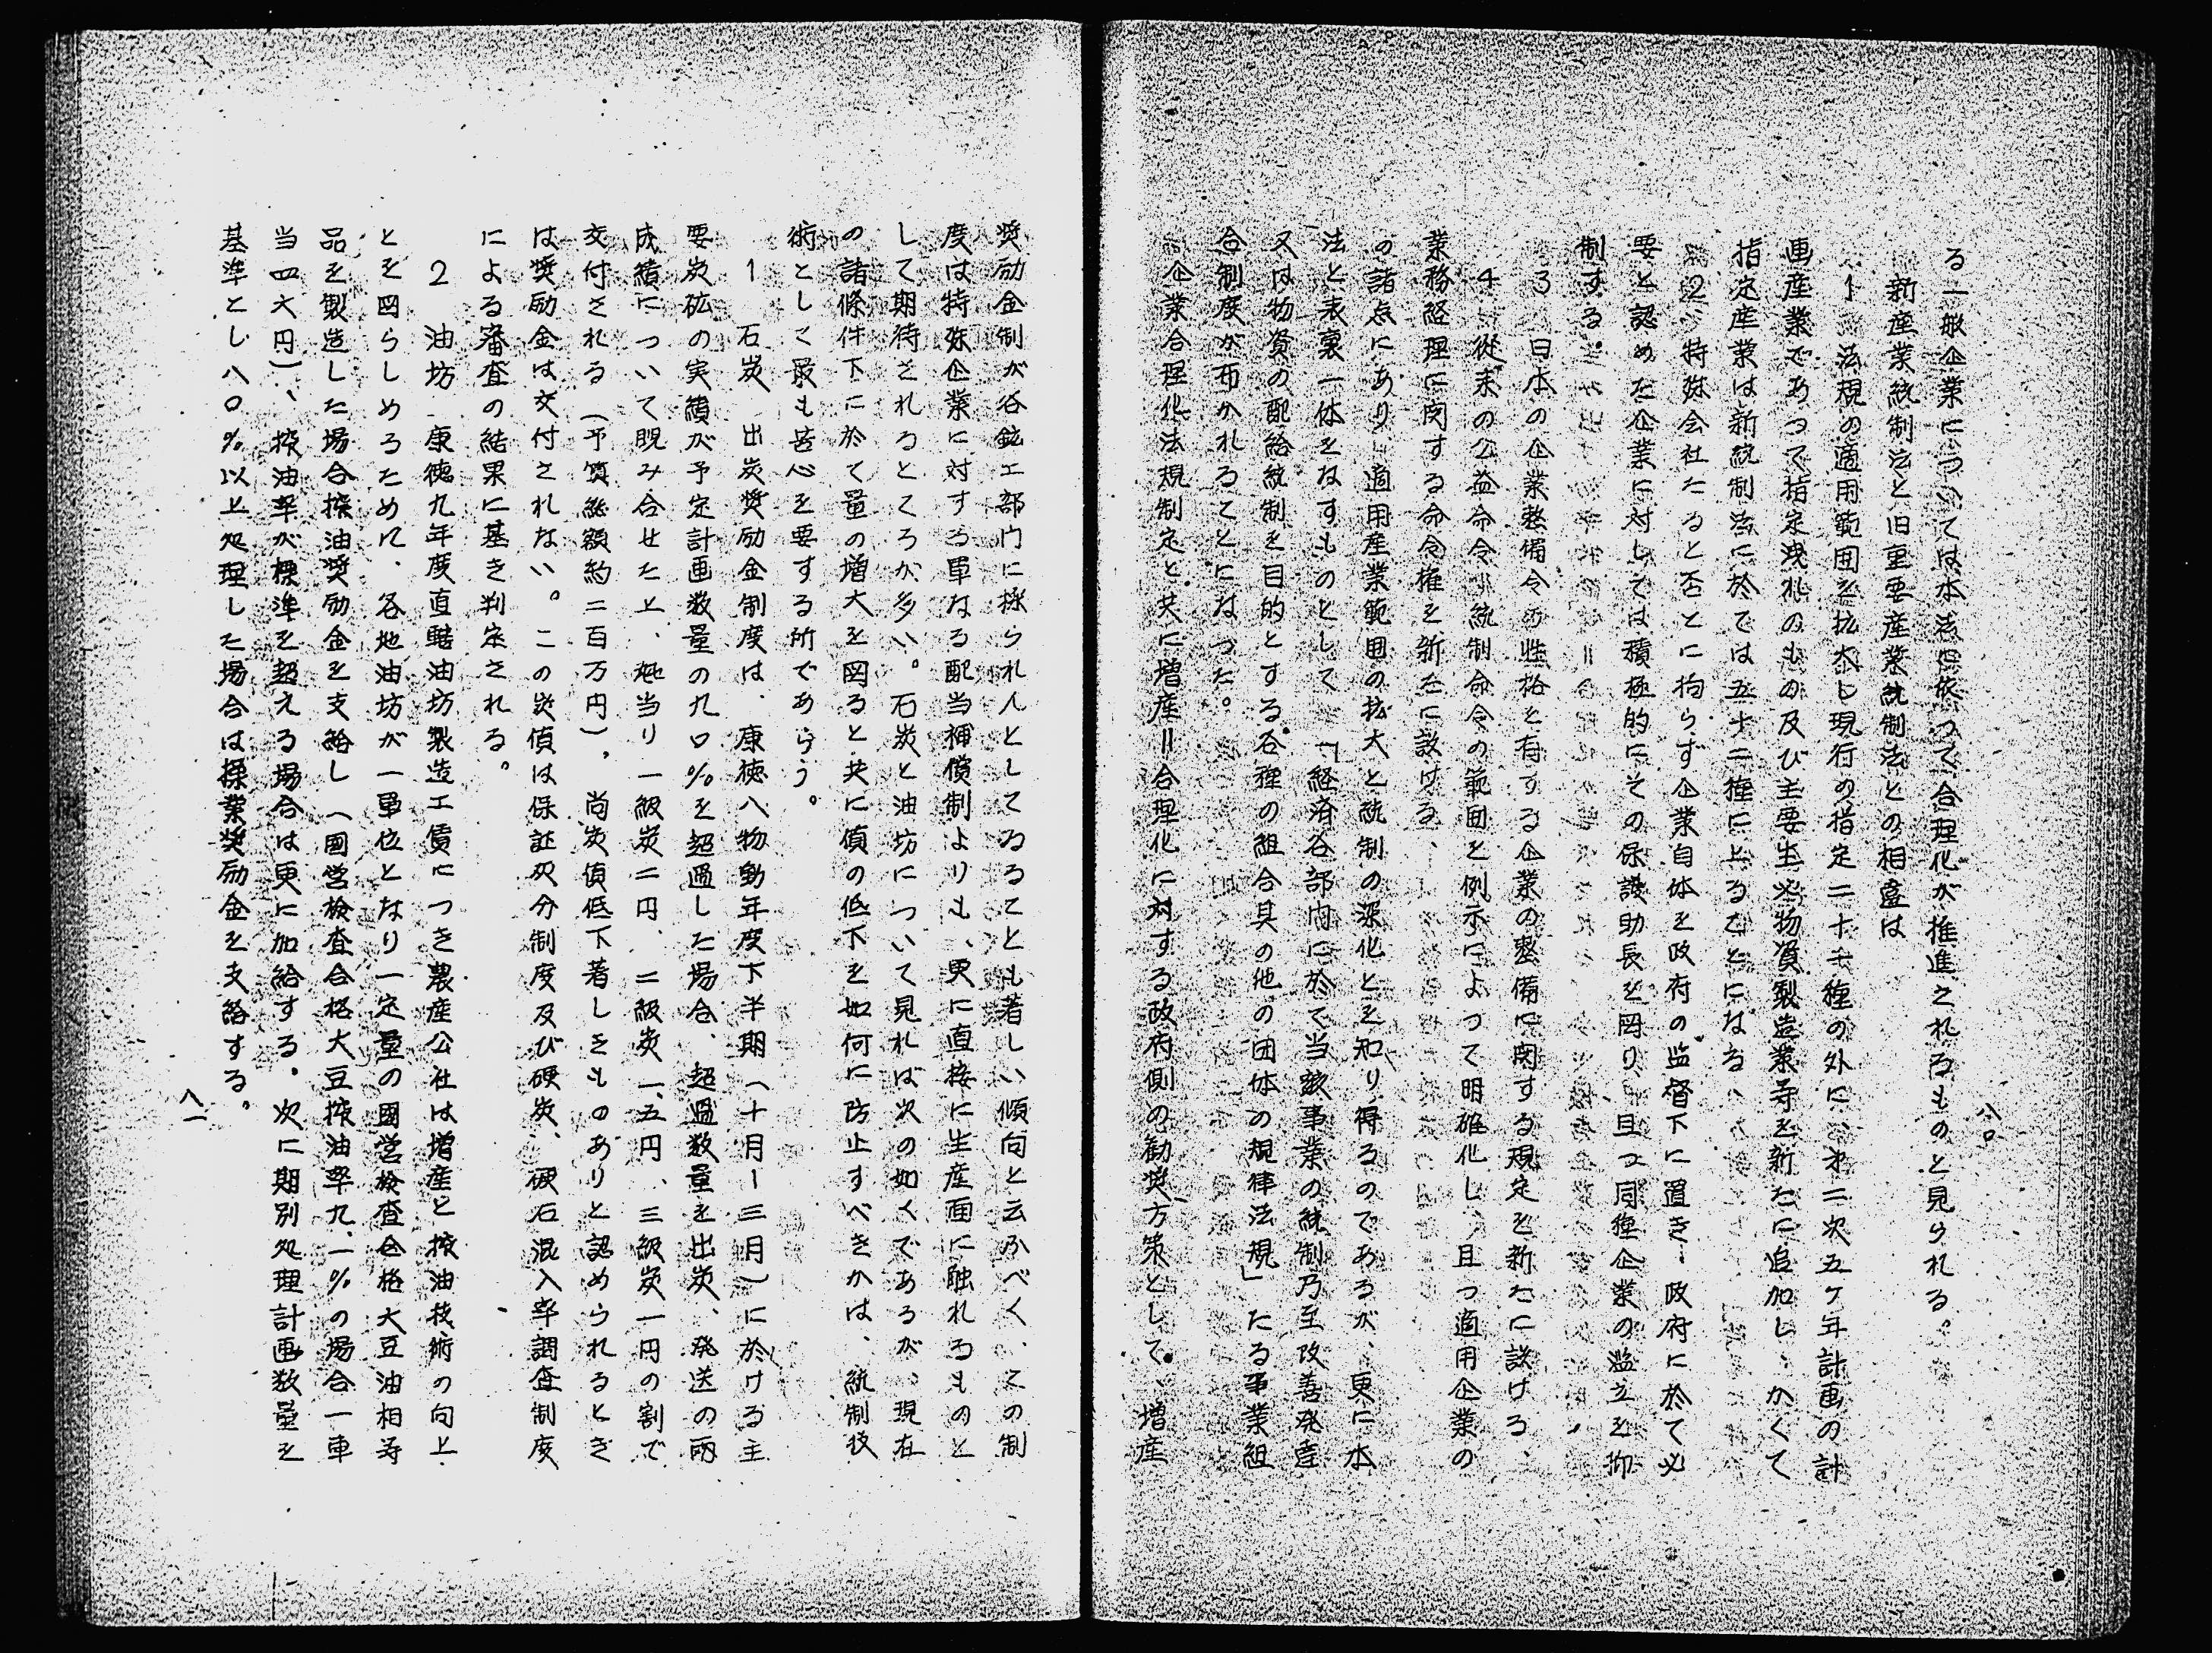 八〇
る一般企業については本法に依つて合理化が推進されるものと見られる。
新産業統制法と旧重要産業統制法との相違は
1 法規の適用範囲を拡大し現行の指定二十 種の外に、才二次五ケ年計画の計
画産業であつて指定洩れのもの及び主要生必物資製造業等を新たに追加し、かくて
指定産業は新統制法に於ては五十二種に上ることになる、
2 特殊会社たると否とに拘らず企業自体を政府の監督下に置き、政府に於て必
要と認めた企業に対しては積極的にその保護助長を図り、且つ同種企業の濫立を抑
制する。
3 日本の企業整備令の性格を有する企業の整備に関する規定を新たに設ける、
4 従来の公益命令=統制命令の範囲を例示によつて明確化し、且つ適用企業の
業務経理に関する命令権を新たに設ける、
の諸点にあり、適用産業範囲の拡大と統制の深化とを知り得るのであるが、更に本
法と表裏一体をなすものとして、「経済各部内に於て当該事業の統制乃至改善発達
又は物資の配給統制を目的とする各種の組合其の他の団体の規律法規」たる事業組
合制度が布かれることになつた。
企業合理化法規制定と共に増産=合理化に対する政府側の勧奨方策として、増産
奨励金制が各鉱工部内に採られんとしてゐることも著しい傾向と云ふべく、この制
度は特殊企業に対する単なる配当補償制よりも、更に直接に生産面に触れるものと
して期待されるところが多い。石炭と油坊について見れば次の如くであるが、現在
の諸條件下に於て量の増大を図ると共に價の低下を如何に防止すべきかは、統制技
術として最も苦心を要する所であらう。
1 石炭 出炭奨励金制度は、康徳八物動年度下半期(十月ー三月)に於ける主
要炭砿の実績が予定計画数量の九〇%を超過した場合、超過数量を出炭、発送の両
成績について睨み合せた上、瓲当り一級炭二円、二級炭一、五円、三級炭一円の割で
交付される(予算総額約二百万円)、尚炭價低下著しきものありと認められるとき
は奨励金は交付されない。この炭價は保証灰分制度及び硬炭、硬石混入率調査制度
による審査の結果に基き判定される。
2 油坊 康徳九年度直轄油坊製造工賃につき農産公社は増産と搾油技術の向上
とを図らしめるため、各地油坊が一單位となり一定量の國営検査合格大豆油相等
品を製造した場合搾油奨励金を支給し(國営検査合格大豆搾油率九、一%の場合一車
当四六円)、搾油率が標準を超える場合は更に加給する。次に期別処理計画数量を
基準とし八〇%以上処理した場合は操業奨励金を支給する。
八一